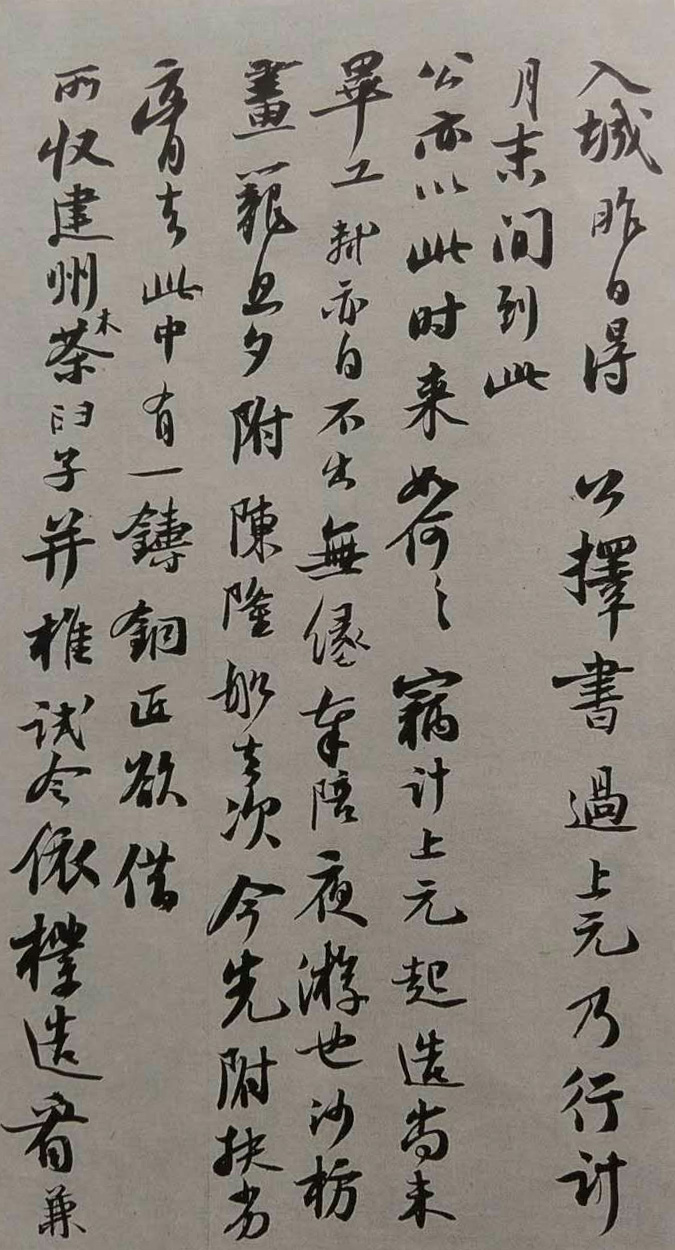 入城昨日得公擇書過上元乃行計
月末间到此
公亦以此时来如何〻竊計上元起造尚未
畢工軾亦自不出無缘奉陪夜遊也沙枋
畫籠旦夕附陳隆船去次今先附扶劣
膏去此中有一鑄銅匠欲借
所收建州木茶臼子并椎試令依樣造看兼